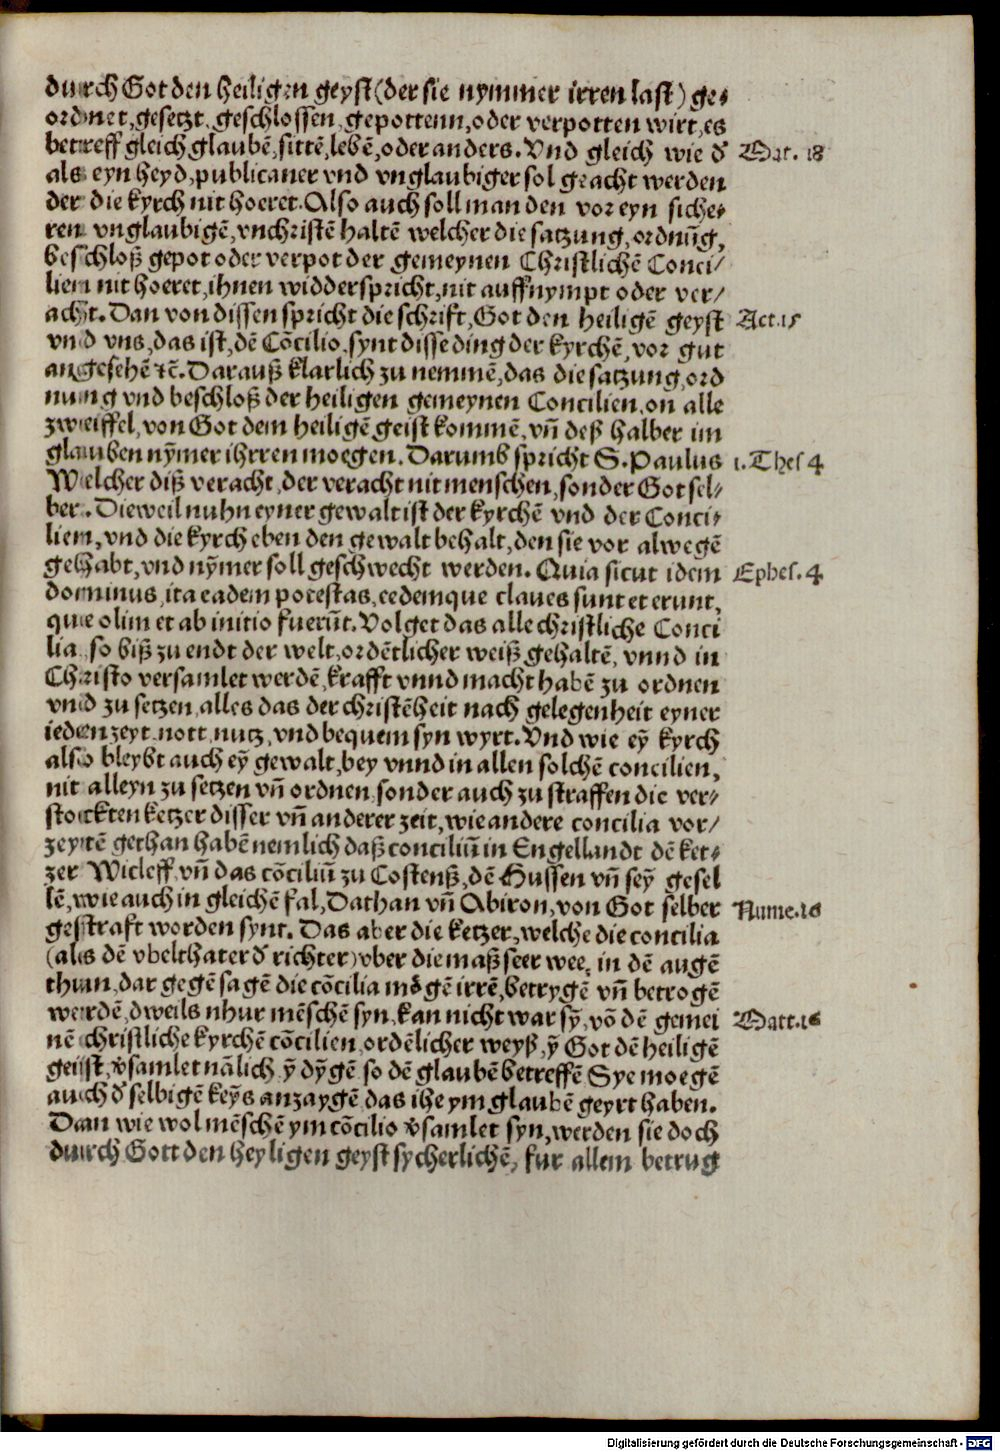 durch Got den heiligen geyst (der sie nymmer irren last) ge⸗
ordnet, gesetzt, geschlossen, gepottenn, oder verpotten wirt, es
betreff gleich glaubē, sittē, lebē, oder anders. Vnd gleich wie d᷑
Mat. 18
als eyn heyd, publicaner vnd vnglaubiger sol geacht werden
der die kyrch nit hoeret. Also auch soll man den vor eyn siche⸗
ren vnglaubigē, vnchristē haltē welcher die satzung, ordnūg,
beschloß gepot oder verpot der gemeynen Christlichē Conci⸗
liem nit hoeret, ihnen widderspricht, nit auffnympt oder ver⸗
acht. Dan von dissen spricht die schrift, Got den heiligē geyst
Act. 15
vnd vns, das ist, dē Cōcilio, synt disse ding der kyrchē, vor gut
angesehē ⁊c̄. Darauß klarlich zu nemmē, das die satzung, ord
nung vnd beschloß der heiligen gemeynen Concilien, on alle
zweiffel, von Got dem heiligē geist kommē, vn̄ deß halber im
glauben nȳmer ihrren moegen. Darumb spricht S. Paulus
1. Thes 4
Welcher diß veracht, der veracht nit menschen, sonder Got sel⸗
ber. Dieweil nuhn eyner gewalt ist der kyrchē vnd der Conci⸗
liem, vnd die kyrch eben den gewalt behalt, den sie vor alwegē
gehabt, vnd nȳmer soll geschwecht werden. Quia sicut idem
Ephes. 4
dominus, ita eadem potestas, eedemque claues sunt et erunt,
que olim et ab initio fuerūt. Volget das alle christliche Conci
lia, so biß zu endt der welt, ordētlicher weiß gehaltē, vnnd in
Christo versamlet werdē, krafft vnnd macht habē zu ordnen
vnd zu setzen, alles das der christēheit nach gelegenheit eyner
ieden zeyt, nott, nutz, vnd bequem syn wyrt. Vnd wie eȳ kyrch
also bleybt auch eȳ gewalt, bey vnnd in allen solchē concilien,
nit alleyn zu setzen vn̄ ordnen, sonder auch zu straffen die ver⸗
stockten ketzer disser vn̄ anderer zeit, wie andere concilia vor⸗
zeytē gethan habē nemlich daß conciliū in Engellandt dē ket⸗
zer Wicleff, vn̄ das cōciliū zu Costenß, dē Hussen vn̄ seȳ gesel
lē, wie auch in gleichē fal, Dathan vn̄ Abiron, von Got selber
Nume. 16
gestraft worden synt. Das aber die ketzer, welche die concilia
(als dē vbelthater d᷑ richter) vber die maß seer wee, in dē augē
thun, dar gegē sagē die cōcilia mögē irrē, betrygē vn̄ betrogē
werdē, dweils nhur mēschē syn, kan nicht war sȳ, vō dē gemei
Matt. 16
nē christliche kyrchē cōcilien, ordēlicher weyß, ȳ Got dē heiligē
geist, v᷑samlet nālich ȳ dȳgē so dē glaubē betreffē Sye moegē
auch d᷑ selbigē keȳs anzaygē das ihe ym glaubē geyrt haben.
Dan wie wol mēschē ym cōcilio v᷑samlet syn, werden sie doch
durch Gott den heyligen geyst sycherlichē, fur allem betrug
Digitalisierung gefördert durch die Deutsche Forschungsgemeinschaft - DFG